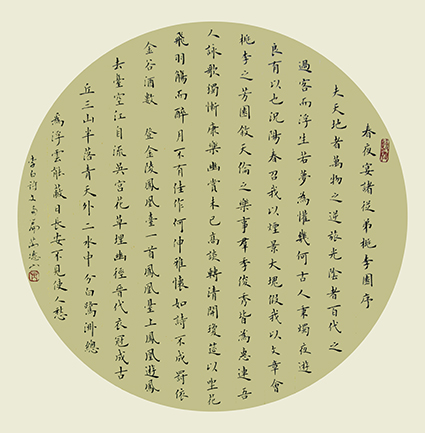 春夜宴諸從弟桃李園序
夫天地者萬物之逆旅光陰者百代之
過客而浮生若夢為懽幾何古人秉燭夜遊
良有以也況陽春召我以煙景大塊假我以文章會
桃李之芳園敘天倫之樂事羣季俊秀皆為惠連吾
人詠歌獨慚康樂幽賞未已高談轉清開瓊筵以坐花
飛羽觴而醉月不有佳作何伸雅懷如詩不成罰依
金谷酒數 登金陵鳳凰臺一首鳳凰臺上鳳凰遊鳳
去臺空江自流吳宮花草埋幽徑晉代衣冠成古
丘三山半落青天外二水中分白鷺洲總
為浮雲能蔽日長安不見使人愁
李白詩文